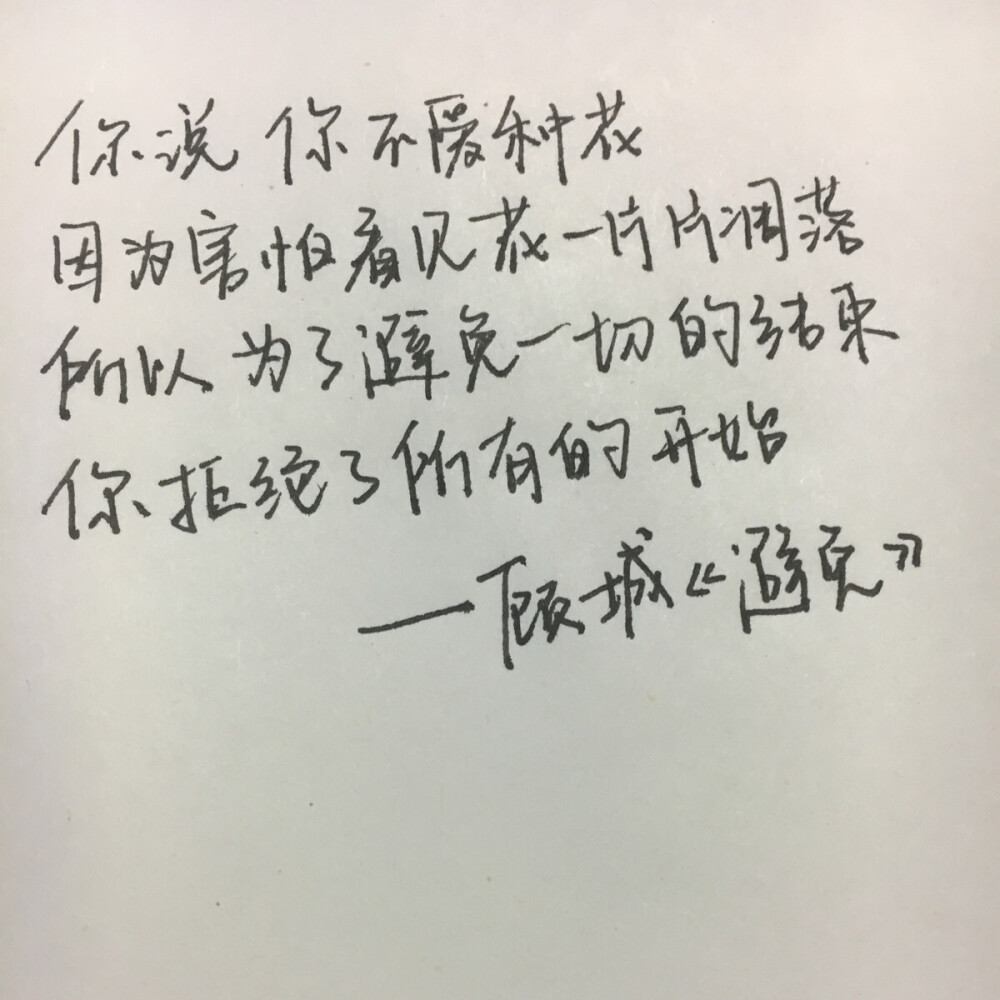 你说 你不爱种花
因为害怕看见花一片片凋落
所以为了避免一切的结束
你拒绝了所有的开始
—顾城《避免》